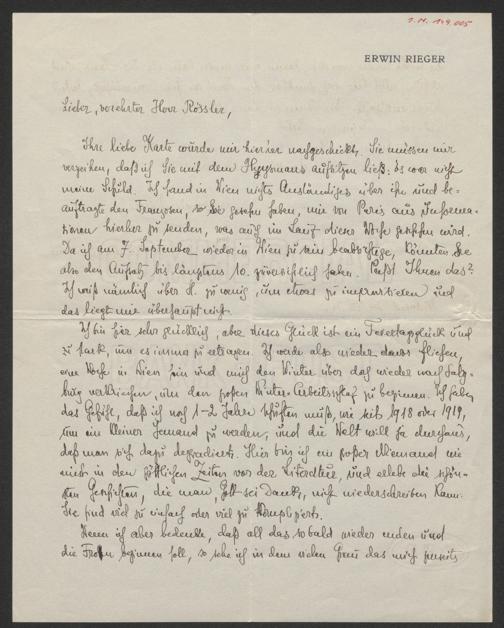 I.N. 149.005
ERWIN RIEGER
Lieber, verehrter Herr Rössler,
Ihre liebe Karte wurde mir hierher nachgeschickt. Sie müssen mir
verzeihen, daß ich Sie mit dem Huysmans aufsitzen ließ: es war nicht
meine Schuld. Ich fand in Wien nichts Anständiges über ihn und be-
auftragte den Franzosen, den Sie gesehen haben, mir von Paris aus Informa-
tionen hierher zu senden, was auch im Lauf dieser Woche geschehen wird.
Da ich am 7. September wieder in Wien zu sein beabsichtige, könnten Sie
also den Aufsatz bis längstens 10. zuversichtlich haben. Paßt Ihnen das?
Ich weiß nämlich über H. zu wenig, um etwas zu improvisieren und
das liegt mir überhaupt nicht.
Ich bin hier sehr glücklich, aber dieses Glück ist ein Feiertagsglück und
zu stark, um es immer zu ertragen. Ich werde also wieder davor fliehen,
eine Woche in Wien sein und mich den Winter über doch wieder nach Salz-
burg verkriechen, um den großen Winter-Arbeitsschlaf zu beginnen. Ich habe
das Gefühl, daß ich noch 1-2 Jahre schuften muß, wie seit 1918 oder 1919,
um ein kleiner Jemand zu werden, und die Welt will ja durchaus,
daß man sich dazu degradiert. Hier bin ich ein großer Niemand wie
einst in den göttlichen Zeiten vor der Literatur, und erlebe die schön-
sten Geschichten, die man, Gott sei Dank, nicht niederschreiben kann.
Sie sind viel zu einfach oder viel zu kompliziert.
Wenn ich aber bedenke, daß all das so bald wieder enden und
die Fron beginnen soll, so sehe ich in dem vielen Grau das mich jenseits